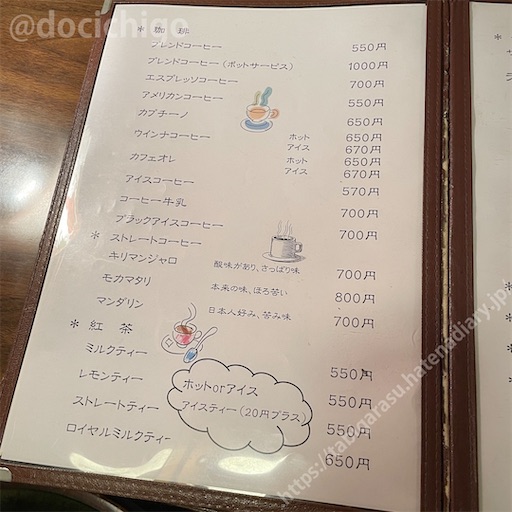 @docichigo
* 珈 琲
ブレンドコーヒー 550円
ブレンドコーヒー（ポットサービス） 1000円
エスプレッソコーヒー 700円
アメリカンコーヒー 550円
カプチーノ 650円
ウインナコーヒー ホット 650円
アイス 670円
カフェオレ ホット 650円
アイス 670円
アイスコーヒー 570円
コーヒー牛乳 700円
ブラックアイスコーヒー 700円
* ストレートコーヒー
キリマンジャロ 酸味があり、さっぱり味 700円
モカマタリ 本来の味、ほろ苦い 800円
マンダリン 日本人好み、苦み味 700円
* 紅 茶
ミルクティー 550円
レモンティー 550円
ストレートティー 550円
ロイヤルミルクティー 650円
ホットorアイス
アイスティー（20円プラス）